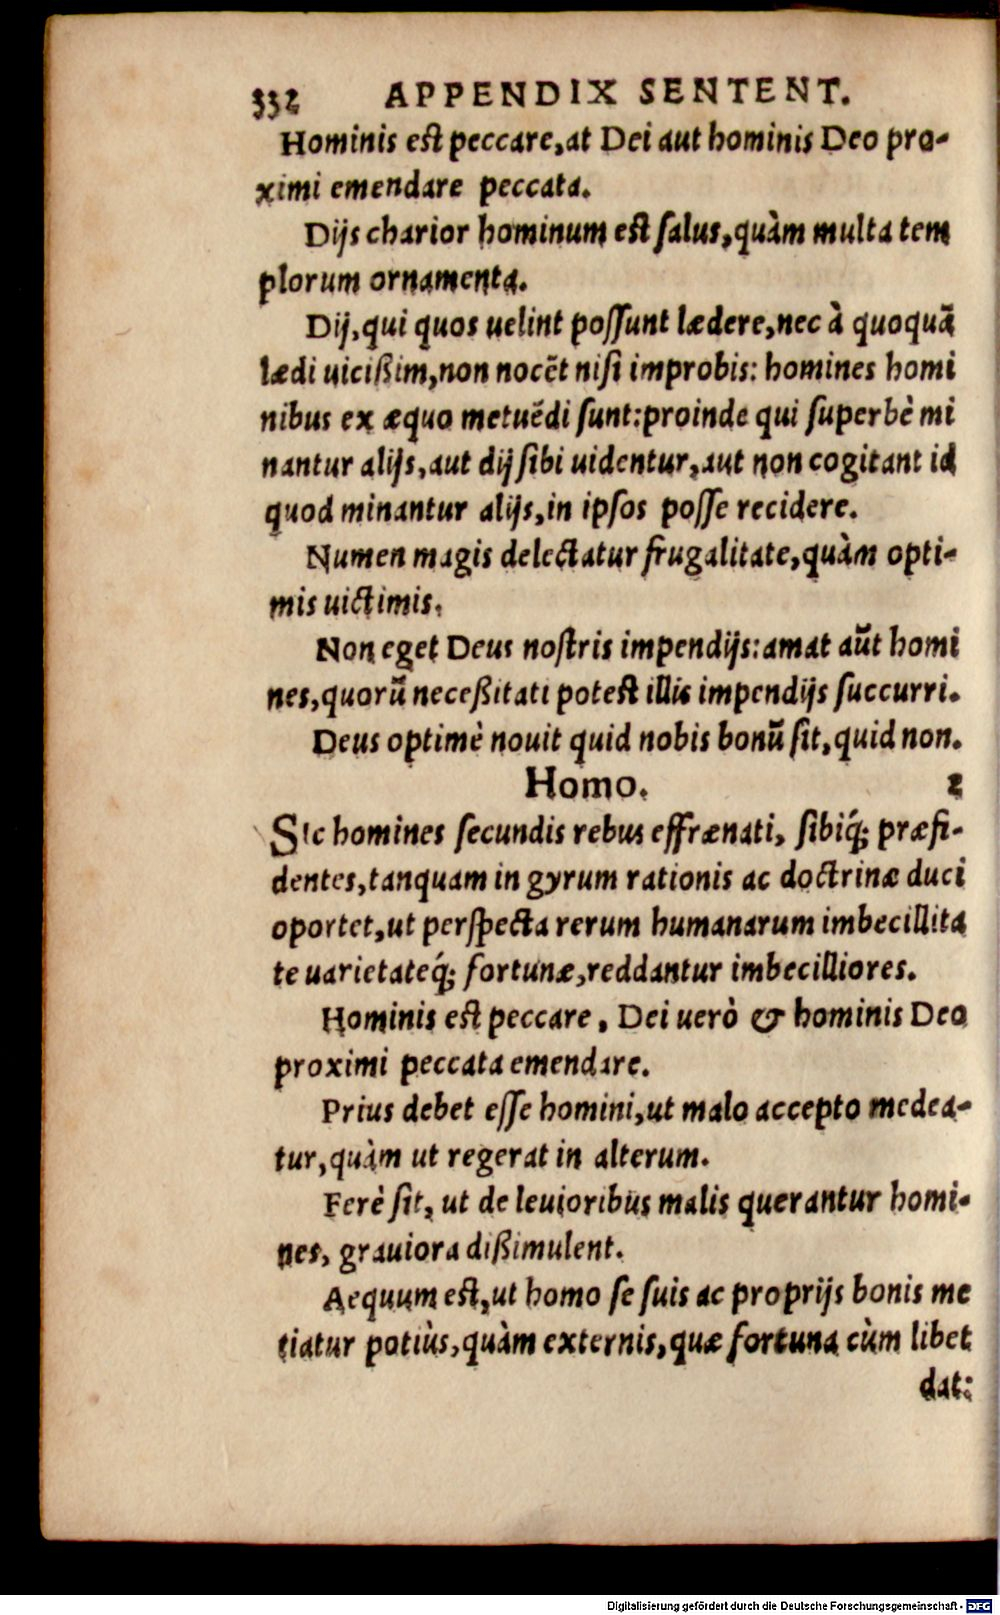 332 APPENDIX SENTENT.
Hominis est peccare, at Dei aut hominis Deo pro-
ximi emendare peccata.
Dijs charior hominum est salus, quàm multa tem
plorum ornamenta.
Dij, qui quos uelint possunt lædere, nec à quoquã
lædi uicißim, non nocẽt nisi improbis: homines homi
nibus ex æquo metuẽdi sunt: proinde qui superbè mi
nantur alijs, aut dij sibi uidentur, aut non cogitant id
quod minantur alijs, in ipsos posse recidere.
Numen magis delectatur frugalitate, quàm opti-
mis uictimis.
Non eget Deus nostris impendijs: amat aũt homi
nes, quorũ neceßitati potest illis impendijs succurri.
Deus optimè nouit quid nobis bonũ sit, quid non.
Homo. 2
Sic homines secundis rebus effrænati, sibiq́; præfi-
dentes, tanquam in gyrum rationis ac doctrinæ duci
oportet, ut perspecta rerum humanarum imbecillita
te uarietateq́; fortunæ, reddantur imbecilliores.
Hominis est peccare, Dei uerò & hominis Deo
proximi peccata emendare.
Prius debet esse homini, ut malo accepto medea-
tur, quàm ut regerat in alterum.
Ferè fit, ut de leuioribus malis querantur homi-
nes, grauiora dißimulent.
Aequum est, ut homo se suis ac proprijs bonis me
tiatur potiùs, quàm externis, quæ fortuna cùm libet
dat:
Digitalisierung gefördert durch die Deutsche Forschungsgemeinschaft - DFG